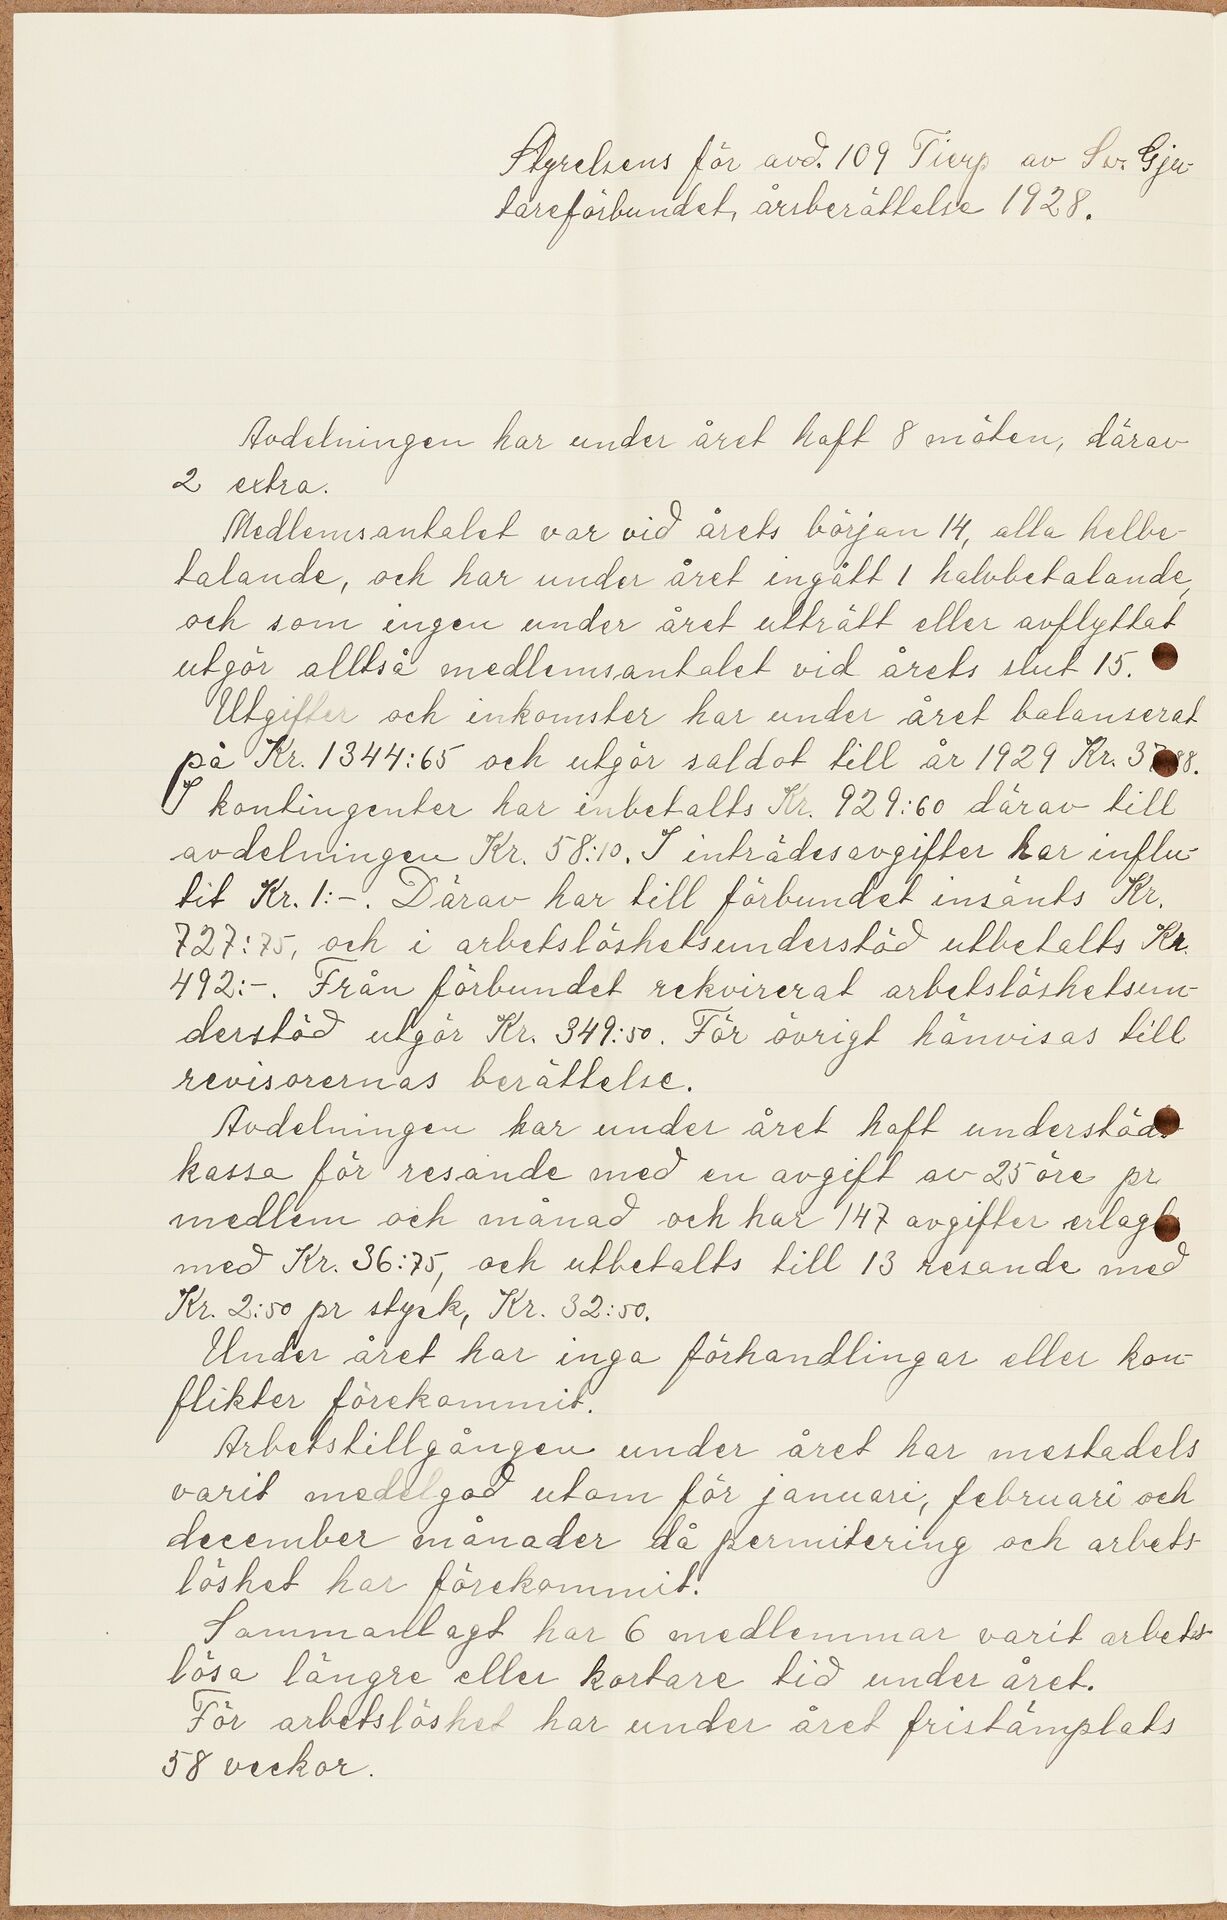 Styrelsens för avd. 109 Tierp av Sv. Gju-
tareförbundet, årsberättelse 1928.
Avdelningen har under året haft 8 möten, därav
2 extra.
Medlemsantalet var vid årets början 14, alla helbe-
talande, och har under året ingått 1 halvbetalande,
och som ingen under året utträtt eller avflyttat
utgör alltså medlemsantalet vid årets slut 15.
Utgifter och inkomster har under året balanserat
på Kr. 1344:65 och utgör saldot till år 1929 Kr.
I kontingenter har inbetalts Kr. 929:60 därav till
avdelningen Kr. 58:10. I inträdesavgifter har influ-
tit Kr. 1:-. Därav har till förbundet insänts Kr.
727:75, och i arbetslöshetsunderstöd utbetalts Kr.
492:-. Från förbundet rekvirerat arbetslöshetsun-
derstöd utgör Kr. 349:50. För övrigt hänvisas till
revisorernas berättelse.
Avdelningen har under året haft understöds
kassa för resande med en avgift av 25 öre pr
medlem och månad och har 147 avgifter erlagts
med Kr. 36:75, och utbetalts till 13 resande med
Kr. 2:50 pr styck, Kr. 32:50.
Under året har inga förhandlingar eller kon-
flikter förekommit.
Arbetstillgången under året har mestadels
varit medelgod utom för januari, februari och
december månader då permitering och arbets-
löshet har förekommit.
Sammanlagt har 6 medlemmar varit arbets-
lösa längre eller kortare tid under året.
För arbetslöshet har under året fristämplats
58 veckor.